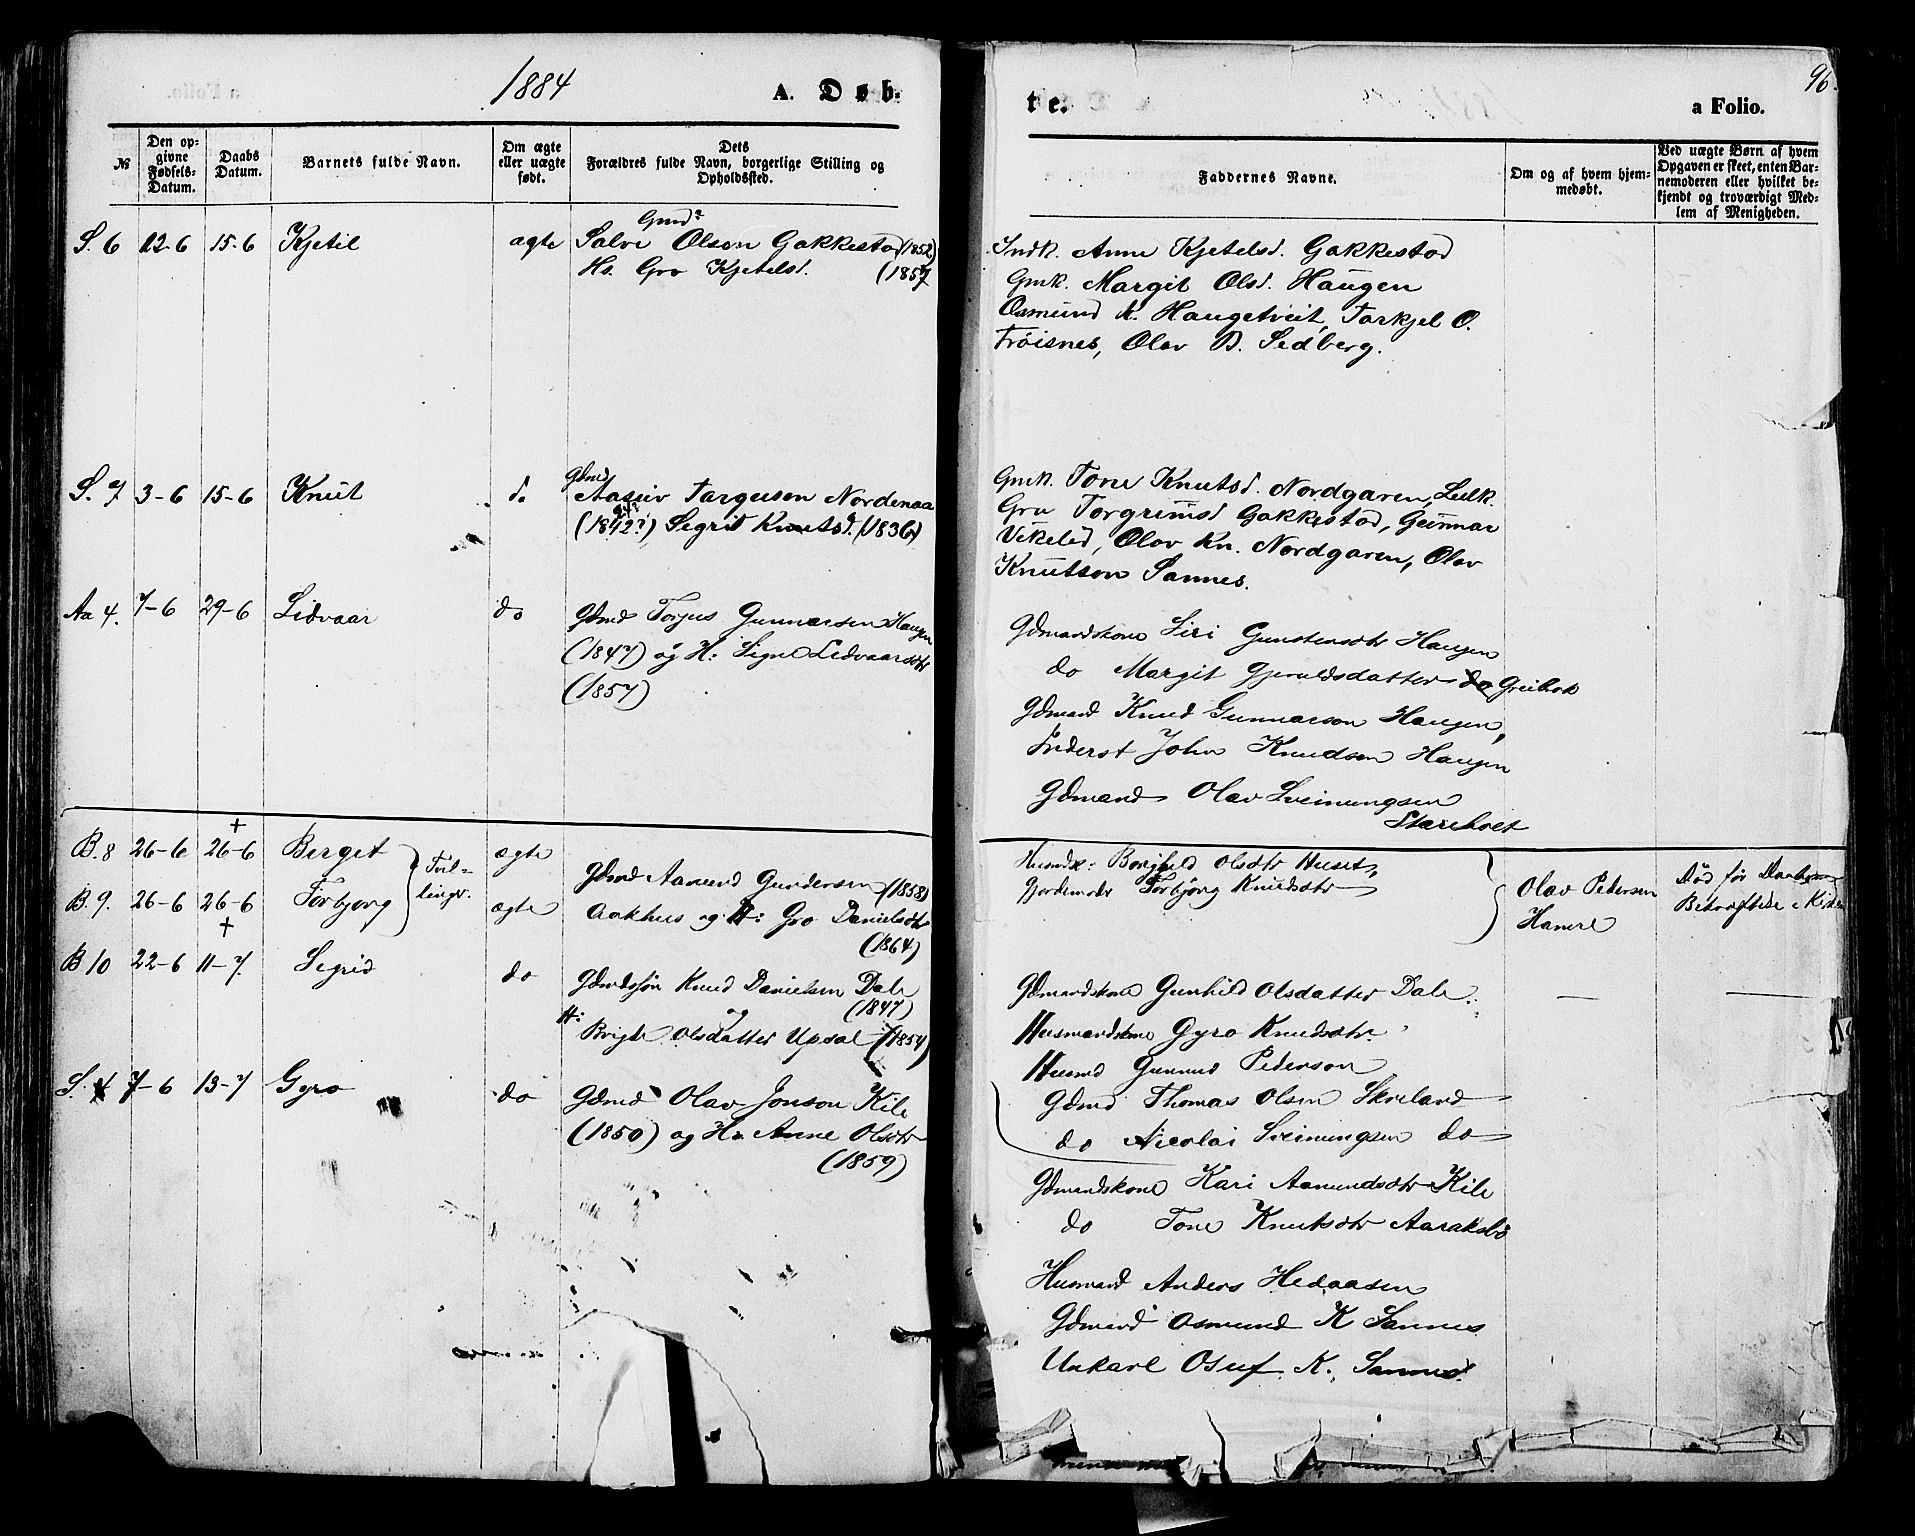 1884
A. Døb-
te.
a Folio.
96.
№
Den op-
givne
Fødsels-
Datum.
Daabs
Datum.
Barnets fulde Navn.
Om ægte
eller uægte
født.
Dets
Forældres fulde Navn, borgerlige Stilling og
Opholdssted.
Faddernes Navne.
Om og af hvem hjem-
medøbt.
Ved uægte Børn af hvem
Opgaven er skeet, enten Bar-
nemoderen eller hvilket be-
kjendt og troværdigt Med-
lem af Menigheden.
S. 6 12-6 15-6 Kjetil ægte
Gmd
Salve Olsen Gakkestad (1852)
Hs. Gro Kjetelsd. (1857)
Indk. Anne Kjetelsd. Gakkestad
Gmk. Margit Olsd. Haugen
Osmund K. Haugetveit, Tarkjel O.
Trøisnes, Olav B. Sedberg.
S. 7 3-6 15-6 Knut do
Gdmd
Aasuv Targusen Nordenaa
(1842?) Segrid Knutsd. (1836)
Gmk. Tone Knutsd. Nordgaren, Ledk.
Gro Torgrimsd Gakkestad, Gunnar
Vikeled, Olav Kn. Nordgaren, Olav
Knutson Sannes.
Aa 4. 7-6 29-6 Lidvaar do
Gdmd Torjus Gunnarsen Haugen
(1847) og H: Signe Ledvaarsdtr
(1857)
Gdmandskone Siri Gunstensdtr Haugen
do Margit Gjeruldsdatter do Greibrok
Gdmand Knud Gunnarson Haugen,
Inderst John Knudsen Haugen
Gdmand Olav Sveinungsen
Stareholt
B. 8 26-6 26-6 + Berget ægte
Tvil-
linger.
B. 9. 26-6 26-6 + Torbjorg ægte
Gdmd Aanund Gundersen (1858)
Aakhus og H: Gro Danielsdtr
(1864)
Husmdk: Borghild Olsdtr Huset,
Gjordemoder Torbjørg Knudsdtr
Olav Pedersen
Hanere
Død før Daabens
Bekræftelse i Kirken
B 10 22-6 11-7 Segrid do
Gdmdssøn Knud Danielsen Dale
(1847)
og
H: Brigte Olsdatter Upsal (1854)
Gdmandskone Gunhild Olsdatter Dale
Husmandskone Gyro Knudsdtr
Husmd Gunnund Pederson
Gdmd Thomas Olsen Skreland
do Nicolai Sveinungsen do
S. 7-6 13-7 Gyro do
Gdmd Olav Jonson Kile
(1850) og H: Anne Olsdtr
(1859)
Gdmandskone Kari Aanundsdtr Kile
do Tone Knutsdtr Aaraksbø
Husmand Anders Hedaasen
Gdmand Osmund K Sannes
Unkarl Osuf K. Sannes